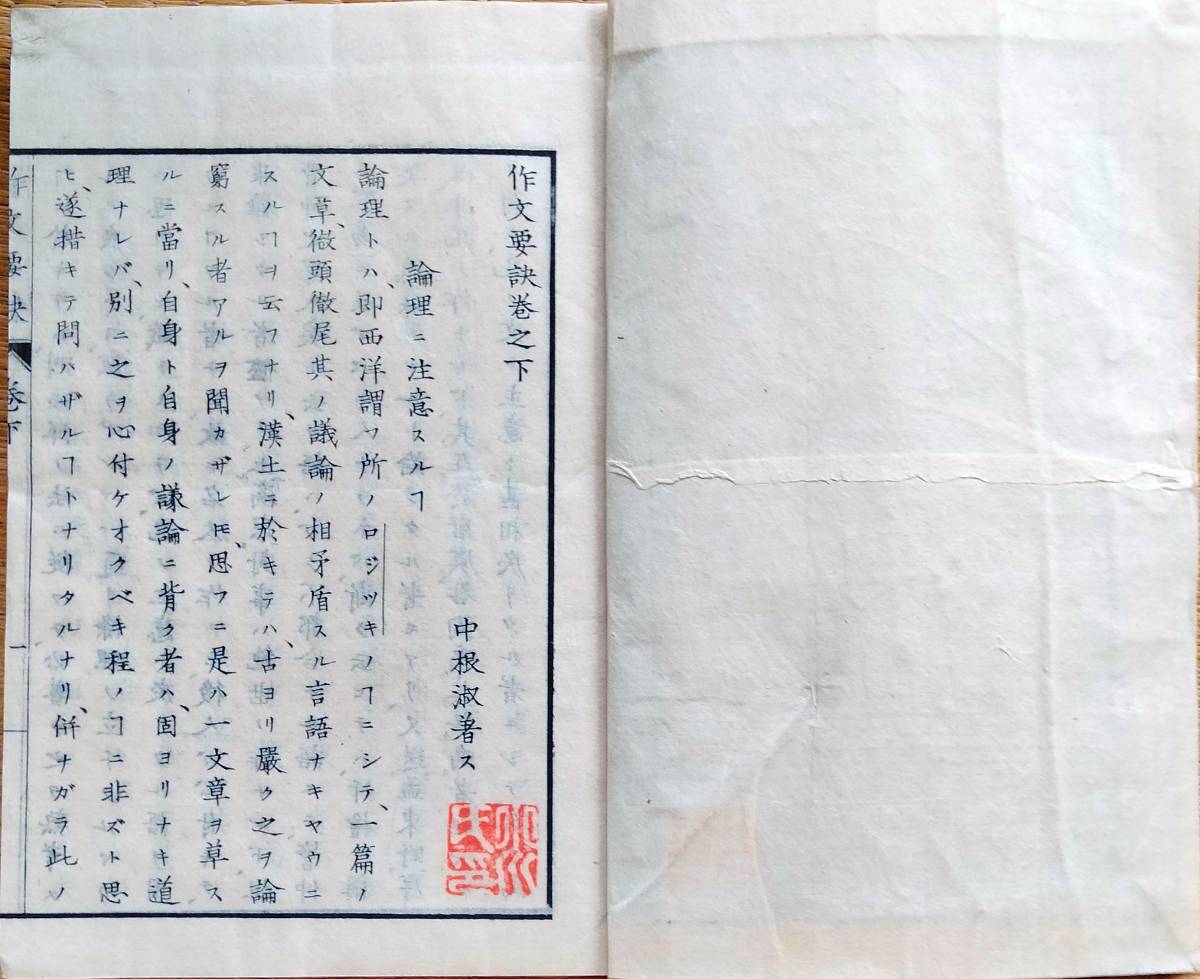 作文要訣巻之下
中根淑著ス
論理ニ注意スルヿ
論理トハ、即西洋謂フ所ノロジツキノヿニシテ、一篇ノ
文草、徹頭徹尾其ノ議論ノ相矛盾スル言語ナキヤウニ
スルヿヲ云フナリ、漢土ニ於キテハ、古ヨリ嚴ク之ヲ論
窮スル者アルヲ聞カザレ𪜈、思フニ是ハ一文章ヲ草ス
ルニ當リ、自身ト自身ノ議論ニ背ク者ハ、固ヨリナキ道
理ナレバ、別ニ之ヲ心付ケオクベキ程ノヿニ非ズト思
ヒ、遂措キテ問ハザルヿトナリタルナリ、併ナガラ此ノ
作文要訣
巻下
一